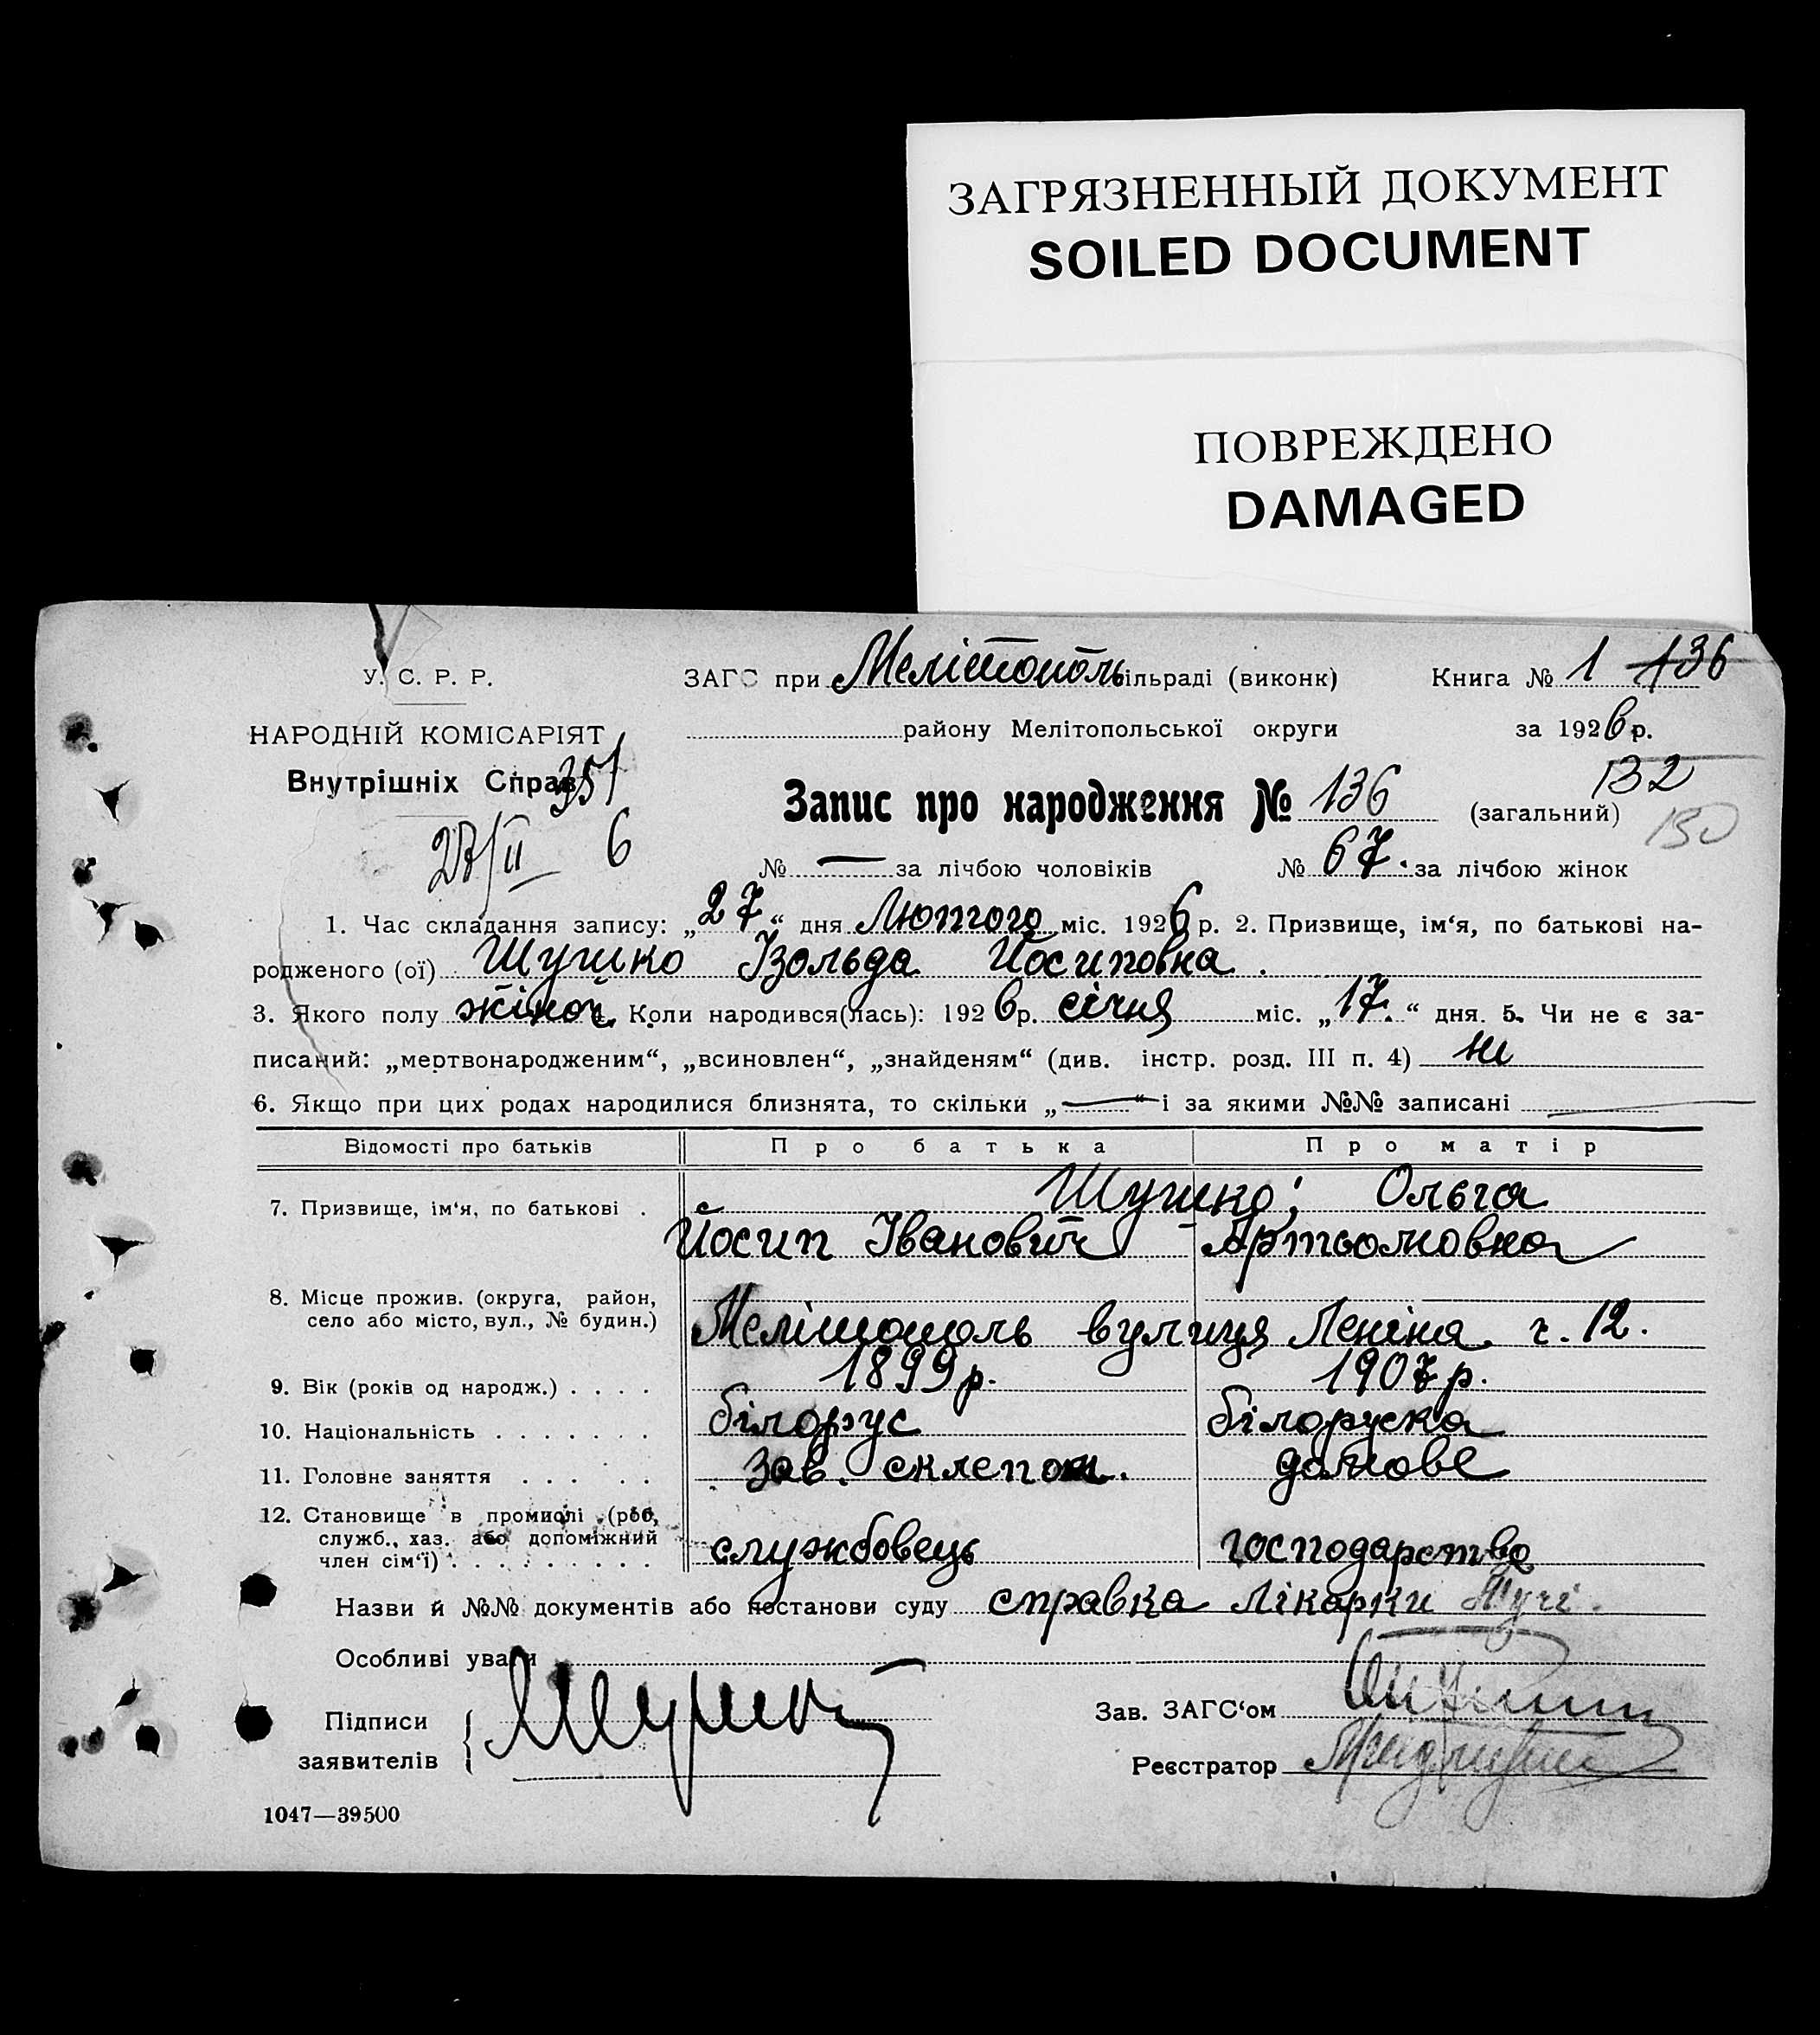 ЗАГРЯЗНЕННЫЙ ДОКУМЕНТ
SOILED DOCUMENT
ПОВРЕЖДЕНО
DAMAGED
У. С. Р. Р.
ЗАГС при Мелітополь ільраді (виконк) Книга № 1 136
НАРОДНІЙ КОМІСАРІЯТ
району Мелітопольської округи за 1926 р.
Внутрішніх Справ 351
132
Запис про народження № 136 (загальний) 130
27/II 6
№ — за лічбою чоловіків № 67. за лічбою жінок
1. Час складання запису: „27“ дня Лютого міс. 1926 р. 2. Призвище, ім‘я, по батькові на-
родженого (ої) Шушко Ізольда Йосиповна.
3. Якого полу жіноч. 4. Коли народився(лась): 1926 р. січня міс. „17.“ дня. 5. Чи не є за-
писаний: „мертвонародженим“, „всиновлен“, „знайденям“ (див. інстр. розд. III п. 4) ні
6. Якщо при цих родах народилися близнята, то скільки „—“ і за якими №№ записані —
Відомості про батьків Про батька Про матір
7. Призвище, ім‘я, по батькові . Шушко; Ольга
Йосип Іванович Артьомовна
8. Місце прожив. (округа, район,
село або місто, вул., № будин.) Мелітополь вулиця Леніна ч. 12.
9. Вік (років од народж.) . . . . 1899 р. 1907 р.
10. Національність . . . . . . . білорус білоруска
11. Головне заняття . . . . . Зав. склепом. домове
12. Становище в промислі (роб,
служб., хаз. або допоміжний
член сім‘ї) . . . . . . . . . службовець господарство
Назви й №№ документів або постанови суду справка лікарки
Особливі уваги
Підписи
заявителів
Зав. ЗАГС‘ом
Реєстратор
1047—39500